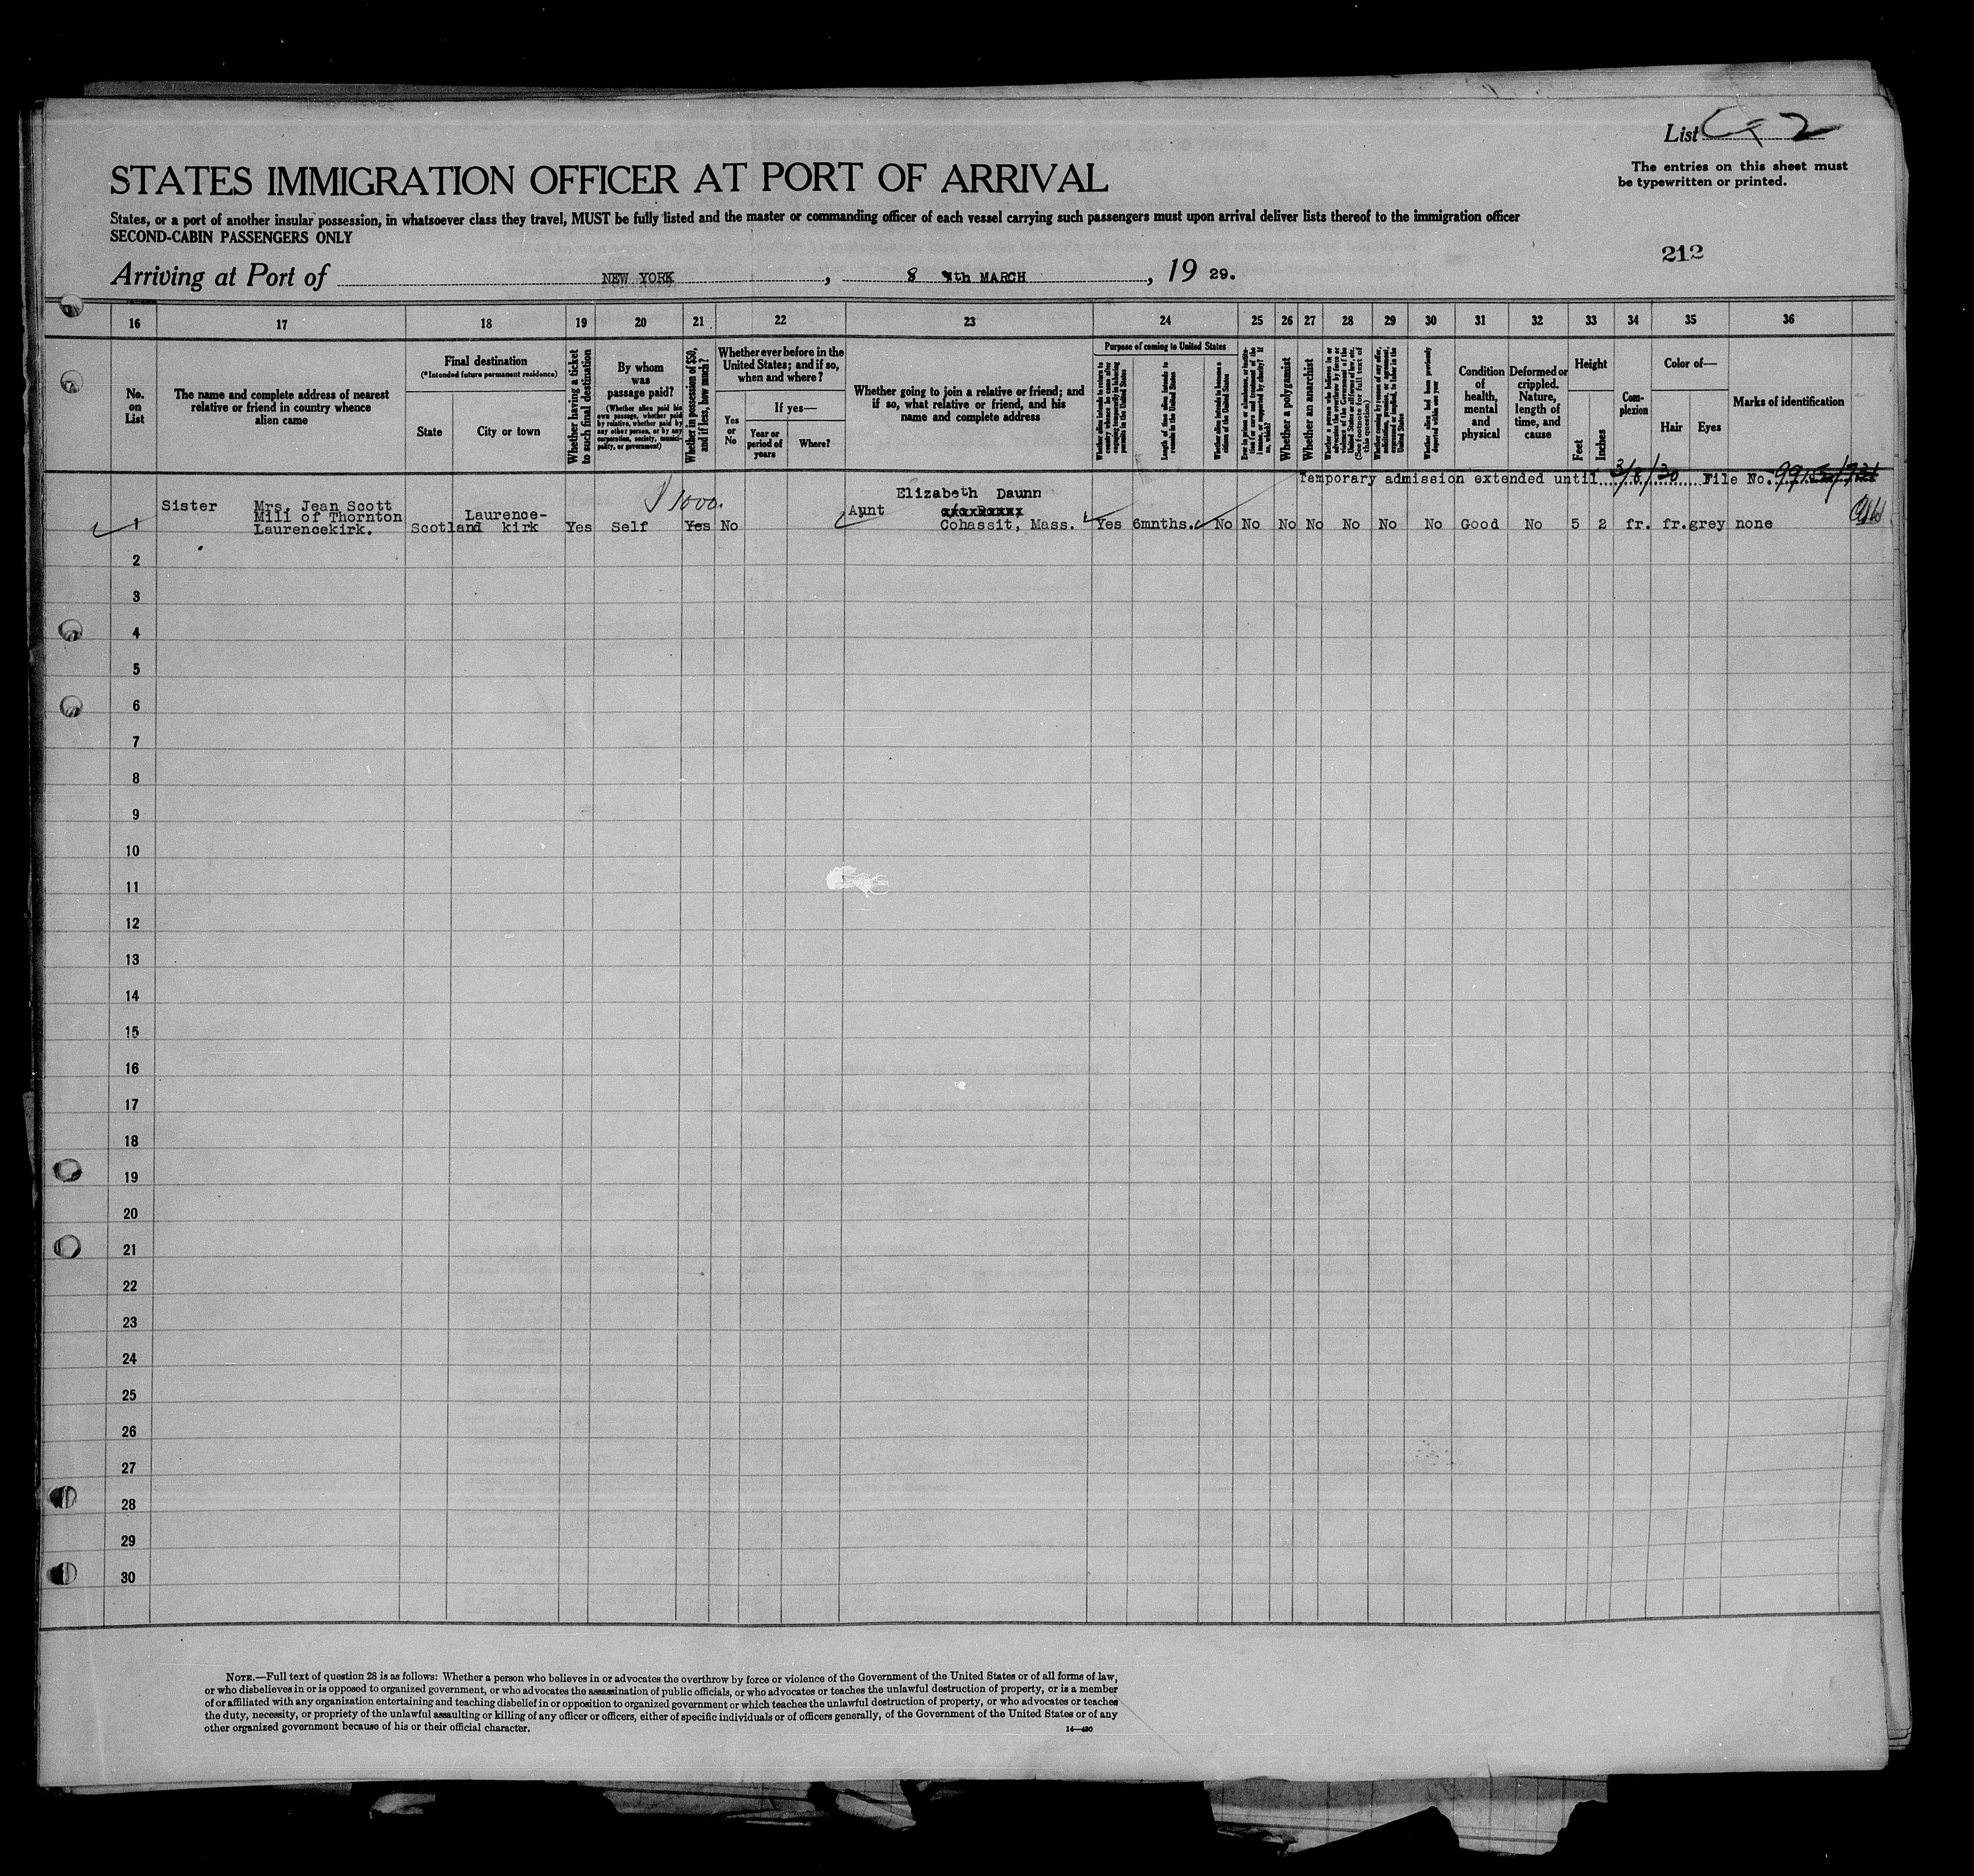 List C-2
The entries on this sheet must
be typewritten or printed.
STATES IMMIGRATION OFFICER AT PORT OF ARRIVAL
States, or a port of another insular possession, in whatsoever class they travel, MUST be fully listed and the master or commanding officer of each vessel carrying such passengers must upon arrival deliver lists thereof to the immigration officer
SECOND-CABIN PASSENGERS ONLY
212
Arriving at Port of NEW YORK, 8 th MARCH, 19 29.
16 17 18 19 20 21 22 23 24 25 26 27 28 29 30 31 32 33 34 35 36
No.
on
List
The name and complete address of nearest
relative or friend in country whence
alien came
Final destination
(*Intended future permanent residence)
State
City or town
Whether having a ticket
to such final destination
By whom
was
passage paid?
(Whether alien paid his
own passage, whether paid
by relative, whether paid by
any other person, or by any
corporation, society, munici-
pality, or government)
Whether in possession of $50,
and if less, how much?
Whether ever before in the
United States; and if so,
when and where?
Yes
or
No
If yes—
Year or
period of
years
Where?
Whether going to join a relative or friend; and
if so, what relative or friend, and his
name and complete address
Purpose of coming to United States
Whether alien intends to return to
country whence he came after
engaging temporarily in laboring
pursuits in the United States
Length of time alien intends to
remain in the United States
Whether alien intends to become a
citizen of the United States
Ever in prison or almshouse, or institu-
tion for care and treatment of the
insane, or supported by charity? If
so, which?
Whether a polygamist
Whether an anarchist
Whether a person who believes in or
advocates the overthrow by force or
violence of the Government of the
United States or all forms of law, etc.
(See footnote for full text of
this question)
Whether coming by reason of any offer,
solicitation, promise, or agreement,
expressed or implied, to labor in the
United States
Whether alien had been previously
deported within one year
Condition
of
health,
mental
and
physical
Deformed or
crippled.
Nature,
length of
time, and
cause
Height
Feet
Inches
Com-
plexion
Color of—
Hair
Eyes
Marks of identification
Temporary admission extended until 3/8/30 File No.
1 Sister Mrs. Jean Scott
Mill of Thornton
Laurencekirk.
Scotland Laurence-
kirk
Yes Self $1000. Yes No
Aunt Elizabeth Daunn
Cohassit, Mass.
Yes 6mnths. No No No No No No No Good No 5 2 fr. fr. grey none
2
3
4
5
6
7
8
9
10
11
12
13
14
15
16
17
18
19
20
21
22
23
24
25
26
27
28
29
30
NOTE.—Full text of question 28 is as follows: Whether a person who believes in or advocates the overthrow by force or violence of the Government of the United States or of all forms of law,
or who disbelieves in or is opposed to organized government, or who advocates the assassination of public officials, or who advocates or teaches the unlawful destruction of property, or is a member
of or affiliated with any organization entertaining and teaching disbelief in or opposition to organized government or which teaches the unlawful destruction of property, or who advocates or teaches
the duty, necessity, or propriety of the unlawful assaulting or killing of any officer or officers, either of specific individuals or of officers generally, of the Government of the United States or of any
other organized government because of his or their official character.
14—430